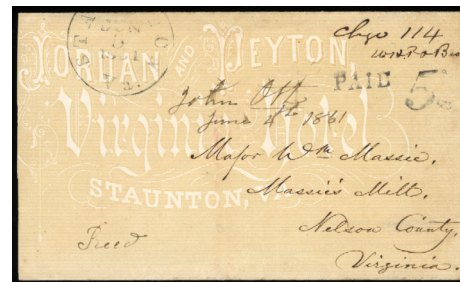 JORDAN AND PEYTON,
Virginia Hotel
STAUNTON, VA.
JUN
5
Chge 114
PAID 5
John
June 4th 1861
Major Wm Massie,
Massie's Mill,
Nelson County,
Virginia.